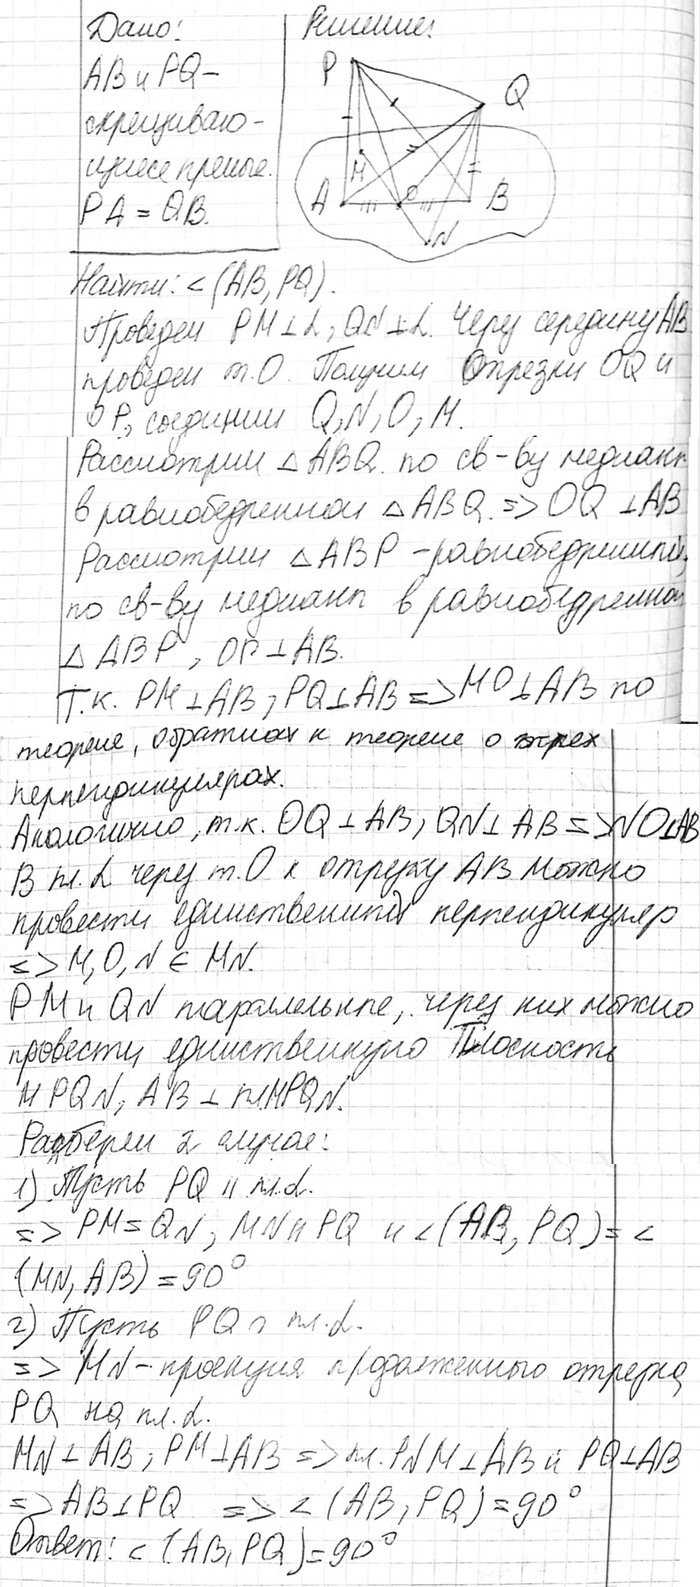 Дано:
АВ и PQ -
скрещиваю-
щиесе премые.
PA = QB.
Решение:
P
Q
M
A
O
B
N
Найти: < (AB, PQ).
Проведем PM⊥α, QN⊥α. Через середину АВ
проведем т.О. Получим Отрезки OQ и
OP, соединим Q, N, O, M.
Рассмотрим △ABQ. по св-ву медиан
в равнобедренном △ABQ. => OQ ⊥AB
Рассмотрим △ABP -равнобедренный,
по св-ву медианы в равнобедренном
△ABP, OP⊥AB.
Т.к. PM⊥AB, PQ⊥AB => MO⊥AB по
теореме, обратная к теореме о трех
перпендикулярах.
Аналогично, т.к. OQ⊥AB, QN⊥AB => NO⊥AB
В пл.α через т.О к отрезку АВ можно
провести единственный перпендикуляр
=> M, O, N ∈ MN.
PM и QN параллельные, через них можно
провести единственную Плоскость
MPQN, AB ⊥ пл.MPQN.
Разберем 2 случае:
1) Пусть PQ || пл.α.
=> PM=QN, MN || PQ и < (AB, PQ) = <
(MN, AB) = 90°
2) Пусть PQ ∩ пл.α.
=> MN - проекция продолженного отрезка
PQ на пл.α.
MN⊥AB, PM⊥AB => пл.PNM⊥AB и PQ⊥AB
=> AB⊥PQ => < (AB, PQ) = 90°
Ответ: < (AB, PQ) = 90°